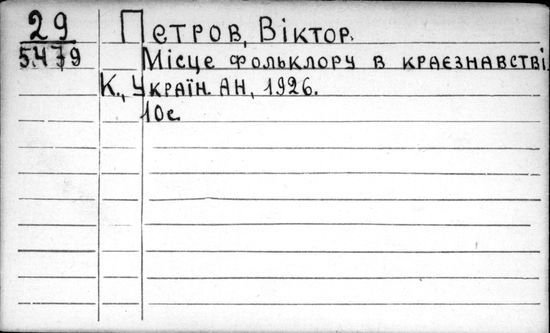 29 Петров, Віктор.
5479 Місце фольклору в краєзнавстві
К., Україн. АН, 1926.
10с.